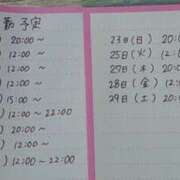 勤予定
) 20:00～
) 12:00～
) 12:00～
) 12:00～
) 15:00～
) 12:00～22:00
) 20:00～
) 12:00～
) 12:00～22:00
23日(日) 20:0
25日(火) 12:
27日(木) 20:0
28日(金) 12:0
29日(土) 20:0